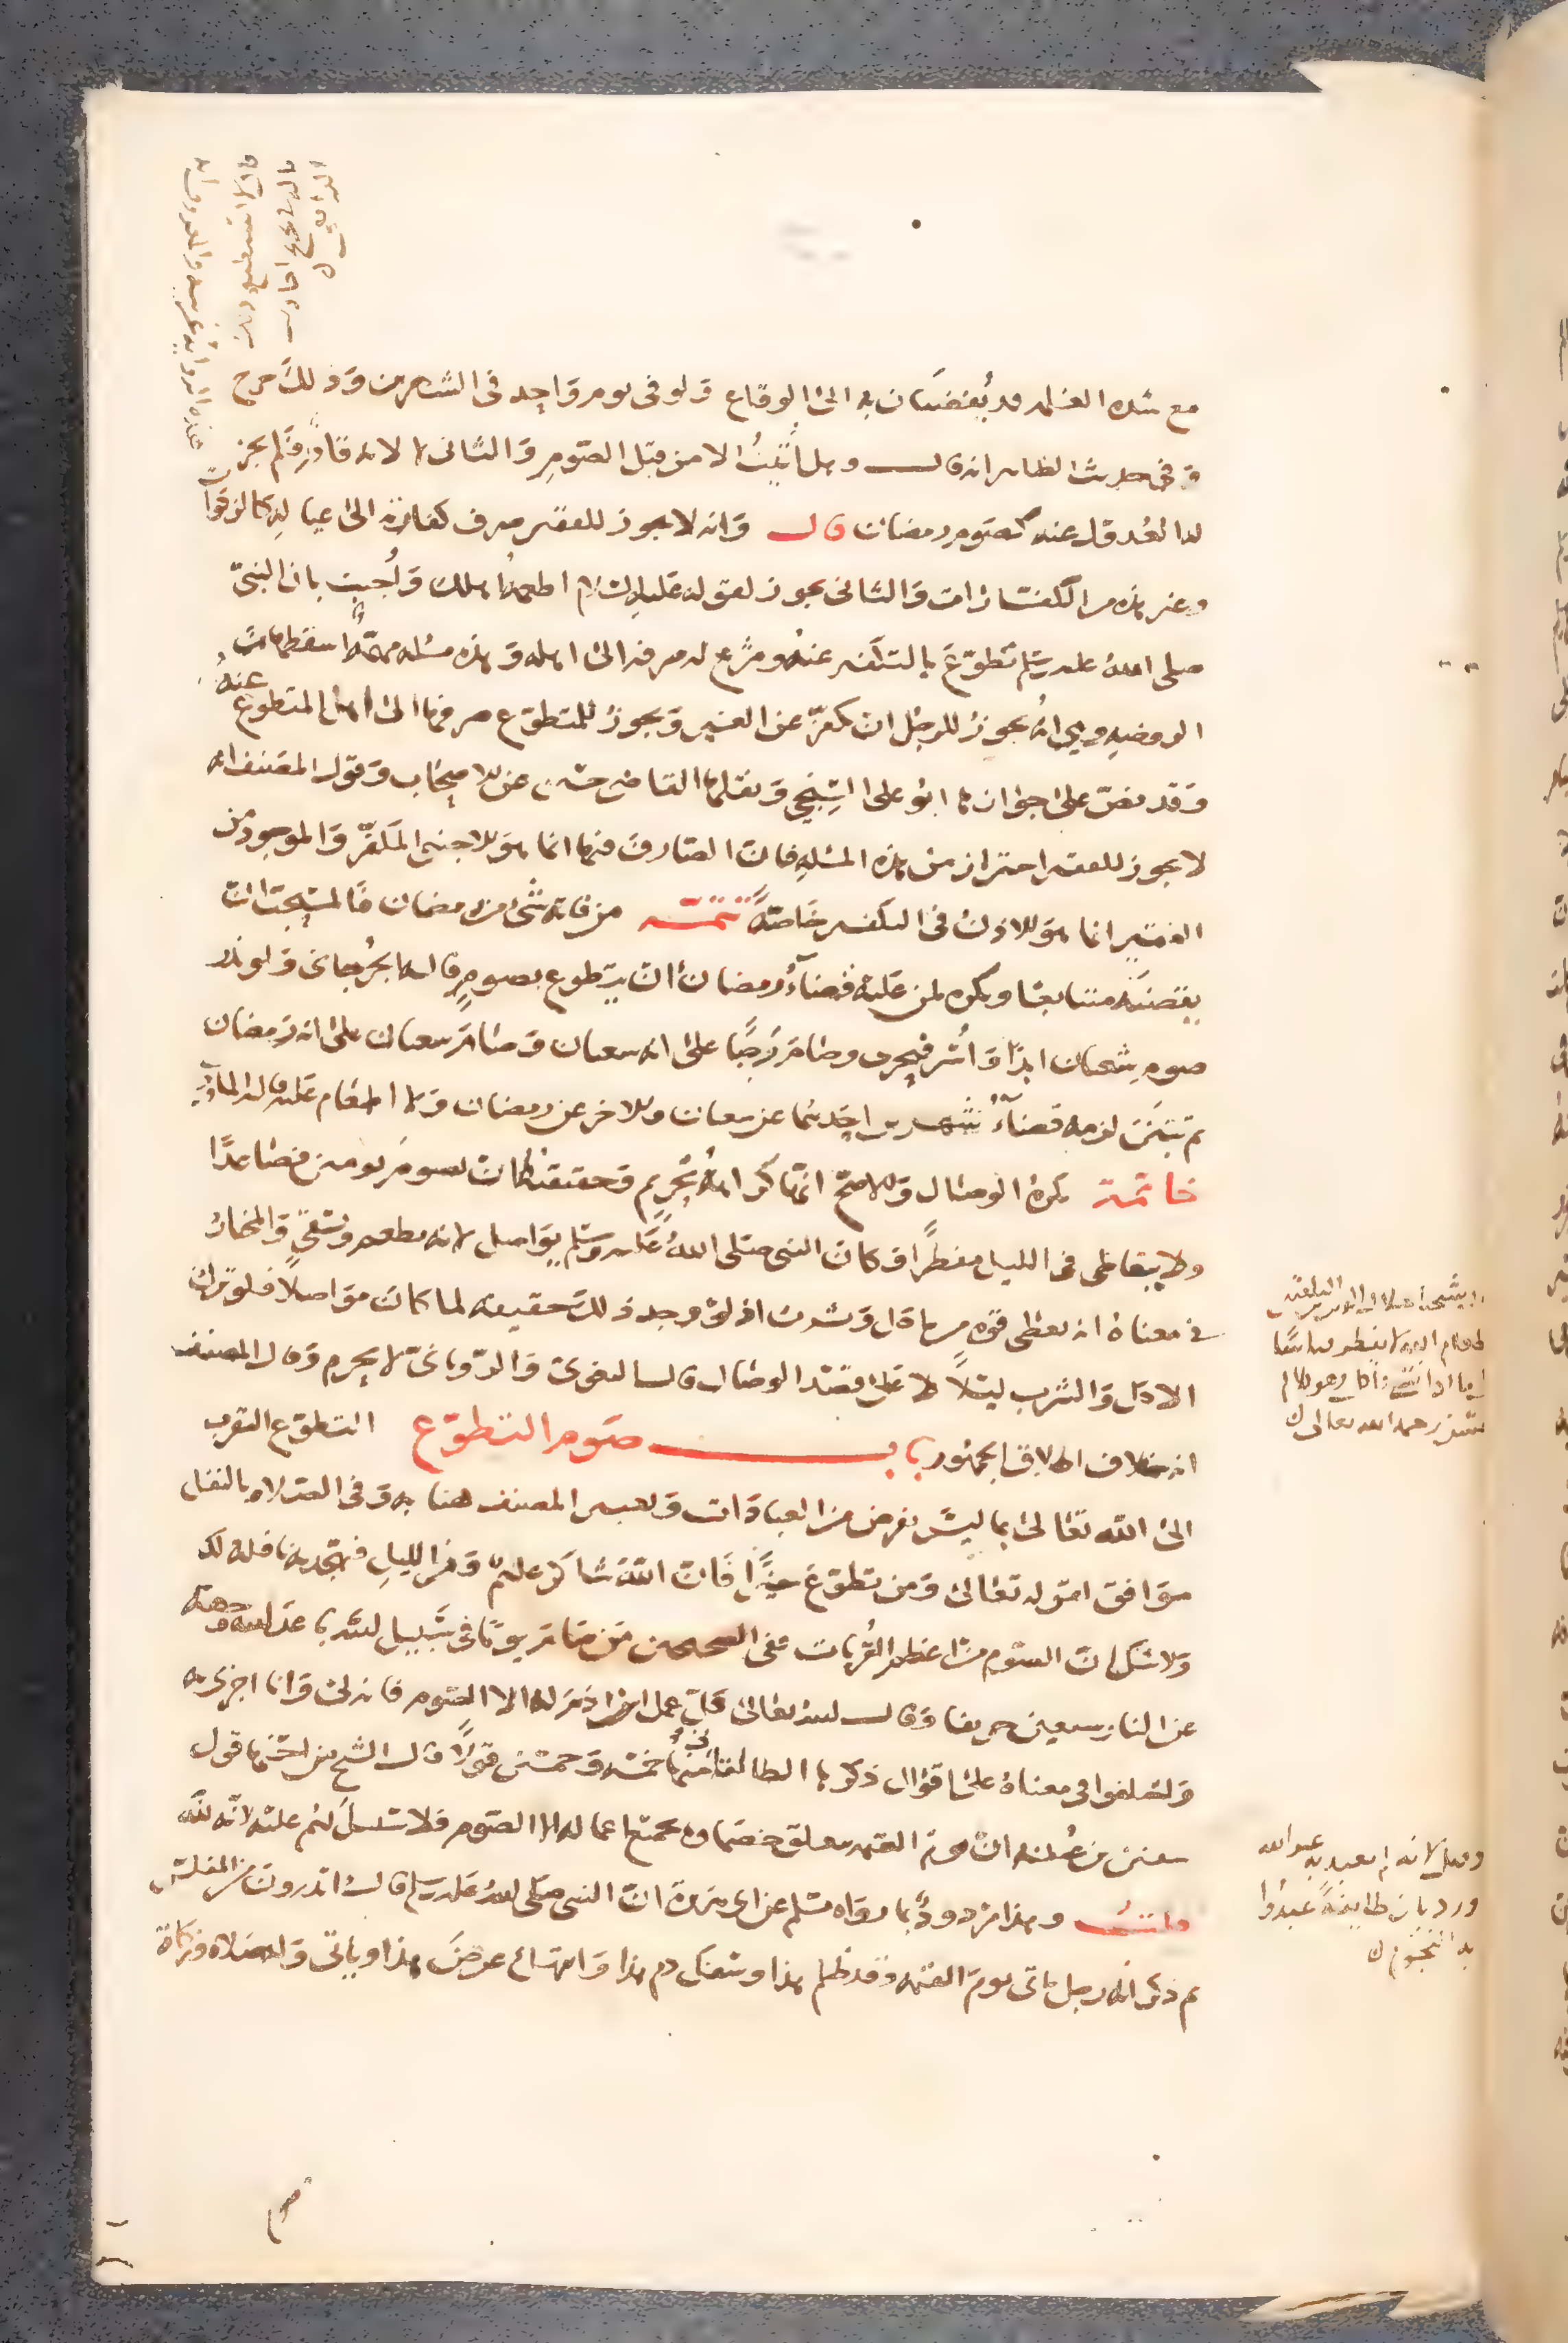 مع شدة الغلمة قد يفضيان به الى الوقاع ولو في يوم واحد في الشهرين وذلك حرج
وفي حديث الظاهر انه قال وهل اتيت الا من قبل الصوم والثاني لا لانه قادر فلم يجز
له العدول عنه كصوم رمضان قال وانه لا يجوز للفقير صرف كفارته الى عياله كالزكوات
وغير هذه من الكفارات والثاني يجوز لقوله عليه السلام اطعمه اهلك واجيب بان النبي
صلى الله عليه وسلم تطوع بالتكفير عنه وشرع له صرفه الى اهله وهذه مسئلة مهمة اسقطها من
الروضة وهي انه يجوز للرجل ان يكفر عن الغير ويجوز للمتطوع صرفها الى اهل المتطوع عنه
وقد نص على جوازها ابو علي السنجي ونقلها القاضي حسين عن الاصحاب وقول المصنف انه
لا يجوز للفقير احتراز من هذه المسئلة فان الصارف فيها انما هو الاجنبي المكفر والموجود من
الفقير انما هو الاذن في التكفير خاصة تتمة من فاته شئ من رمضان فالمستحب ان
يقضيه متتابعا ويكره لمن عليه قضاء رمضان ان يتطوع بصوم قاله الجرجاني ولو نذر
صوم شعبان ابدا واسر فتحرى وصام رجبا على انه شعبان وصام شعبان على انه رمضان
ثم تبين لزمه قضاء شهرين احدهما عن شعبان والاخر عن رمضان ولا اطعام عليه قاله الماوردي
خاتمة يكره الوصال والاصح انها كراهة تحريم وحقيقته ان يصوم يومين فصاعدا
ولا يتعاطى في الليل مفطرا وكان النبي صلى الله عليه وسلم يواصل لانه يطعم ويسقى والمختار
في معناه انه يعطى قوة من اكل وشرب اذ لو وجد ذلك حقيقة لما كان مواصلا فلو ترك
الاكل والشرب ليلا لا على قصد الوصال قال البغوي والروياني لا يحرم وقال المصنف
انه خلاف اطلاق الجمهور باب صوم التطوع التطوع التقرب
الى الله تعالى بما ليس بفرض من العبادات وتعبير المصنف هنا به وفي الصلاة بالنفل
موافق لقوله تعالى ومن تطوع خيرا فان الله شاكر عليم ومن الليل فتهجد به نافلة لك
ولا شك ان الصوم من اعظم القربات ففي الصحيحين من صام يوما في سبيل الله باعد الله وجهه
عن النار سبعين خريفا وقال الله تعالى كل عمل ابن ادم له الا الصوم فانه لي وانا اجزي به
واختلفوا في معناه على اقوال ذكر الطالقاني منها خمسة وخمسين قولا قال الشيخ من احسنها قول
سفين بن عيينة ان يوم القيمة يتعلق خصماؤه بجميع اعماله الا الصوم فلا سبيل لهم عليه لانه لله
قلت وهذا مردود بما رواه مسلم عن ابي هريرة ان النبي صلى الله عليه وسلم قال اتدرون من المفلس
ثم ذكر انه رجل ياتي يوم القيمة وقد ظلم هذا وسفك دم هذا وانتهك عرض هذا وياتي وله صلاة وزكاة
وقيل لانه لم يعبد به غير الله
ورد بان طايفة عبدوا
به النجوم